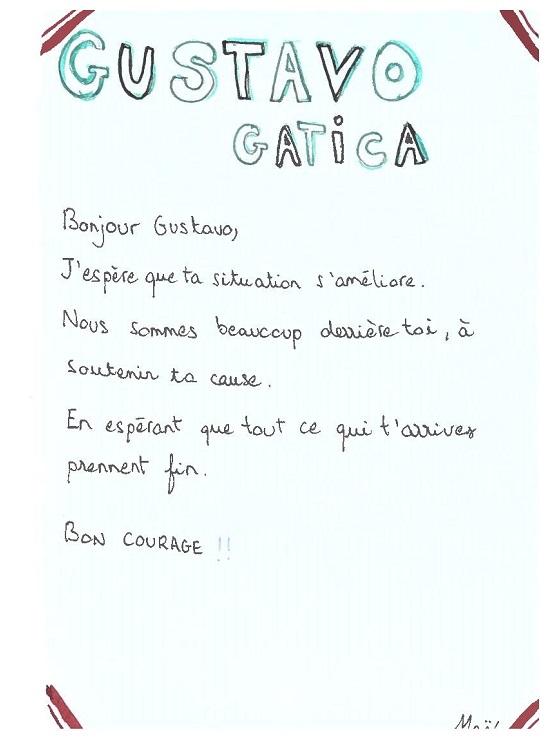 GUSTAVO
GATICA
Bonjour Gustavo,
J'espère que ta situation s'améliore.
Nous sommes beaucoup derrière toi, à
soutenir ta cause.
En espérant que tout ce qui t'arrives
prennent fin.
BON COURAGE !!